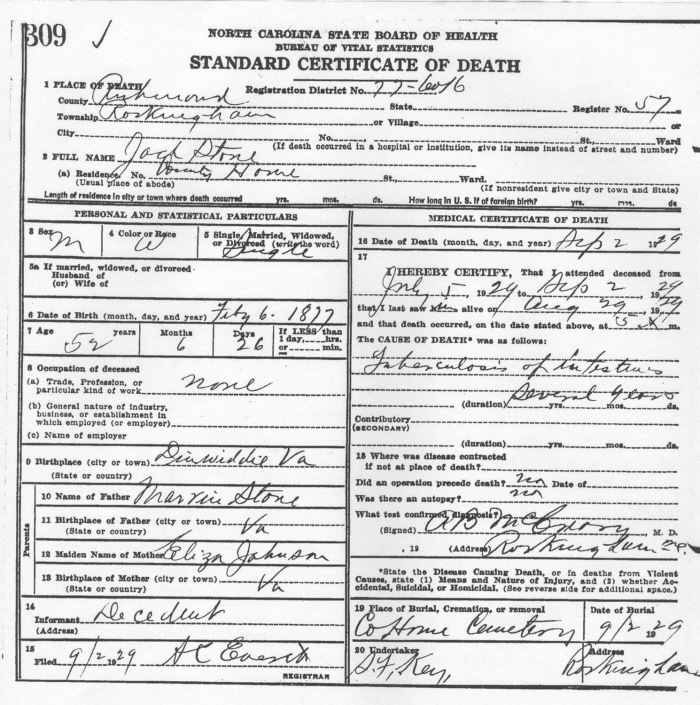 309
NORTH CAROLINA STATE BOARD OF HEALTH
BUREAU OF VITAL STATISTICS
STANDARD CERTIFICATE OF DEATH
1 PLACE OF DEATH
Registration District No. 77-6016
County Richmond State Register No. 57
Township Rockingham or Village or
City No. St., Ward
(If death occurred in a hospital or institution, give its name instead of street and number)
2 FULL NAME Jack Stone
(a) Residence. No. County Home St., Ward.
(Usual place of abode) (If nonresident give city or town and State)
Length of residence in city or town where death occurred yrs. mos. ds. How long in U. S. if of foreign birth? yrs. mos. ds
PERSONAL AND STATISTICAL PARTICULARS
3 Sex M
4 Color or Race W
5 Single, Married, Widowed, or Divorced (write the word) Single
5a If married, widowed, or divorced
Husband of
(or) Wife of
6 Date of Birth (month, day, and year) Feby 6. 1877
7 Age 52 years Months 6 Days 26 If LESS than
1 day, hrs.
or min.
8 Occupation of deceased
(a) Trade, Profession, or
particular kind of work none
(b) General nature of industry,
business, or establishment in
which employed (or employer)
(c) Name of employer
9 Birthplace (city or town) Dinwiddie Va
(State or country)
Parents
10 Name of Father Marvin Stone
11 Birthplace of Father (city or town) Va
(State or country)
12 Maiden Name of Mother Eliza Johnson
13 Birthplace of Mother (city or town) Va
(State or country)
14
Informant Decedent
(Address)
15
Filed 9/2 1929
REGISTRAR
MEDICAL CERTIFICATE OF DEATH
16 Date of Death (month, day, and year) Sep 2 1929
17
I HEREBY CERTIFY, That I attended deceased from
July 5, 1929 to Sep 2 1929
that I last saw him alive on Aug 29 1929
and that death occurred, on the date stated above, at 5 m.
The CAUSE OF DEATH* was as follows:
Tuberculosis of intestines
Several years
(duration) yrs. mos. ds.
Contributory
(SECONDARY)
(duration) yrs. mos. ds.
18 Where was disease contracted
if not at place of death?
Did an operation precede death? no Date of
Was there an autopsy? no
What test confirmed diagnosis?
(Signed) M. D.
, 19 (Address) Rockingham
*State the Disease Causing Death, or in deaths from Violent
Causes, state (1) Means and Nature of Injury, and (2) whether Ac-
cidental, Suicidal, or Homicidal. (See reverse side for additional space.)
19 Place of Burial, Cremation, or removal Date of Burial
Co Home Cemetery 9/2 1929
20 Undertaker Address
S. F. Key, Rockingham